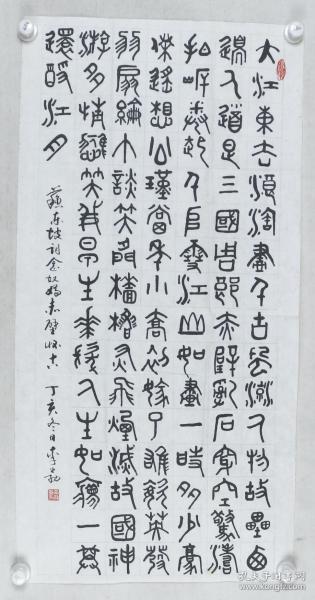 大江東去浪淘盡千古風流人物故壘西
邊人道是三國周郎赤壁亂石穿空驚濤
拍岸卷起千堆雪江山如畫一時多少豪
傑遙想公瑾當年小喬初嫁了雄姿英發
羽扇綸巾談笑間檣櫓灰飛煙滅故國神
游多情應笑我早生華髮人生如夢一尊
還酹江月
蘇東坡詞念奴嬌赤壁懷古 丁亥冬日李